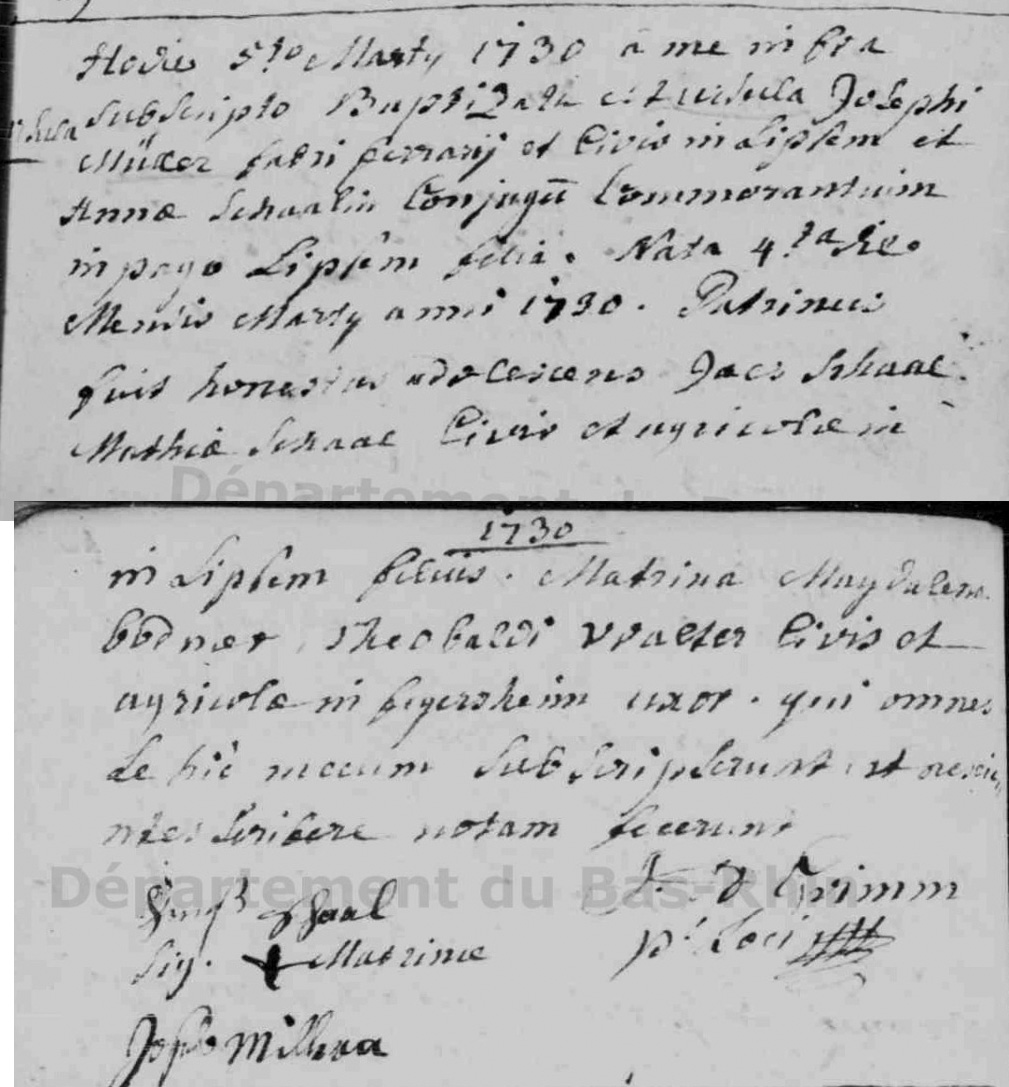 Hodie 5to Marty 1730 à me infra
subscripto Baptizata est ursula Josephi
Müller fabri ferrarij et Civis in Lipsem et
Annæ Schaalin Conjugū Commorantium
in pago Lipsem filia. Nata 4ta die
Mensis Marty anni 1730. Patrinus
fuit honestus adolescens Jacs Schaal.
Mathiæ Schaal Civis et agricolæ in
1730
in Lipsem filius. Matrina Magdalena
theobaldi Walter Civis et
agricolæ in fegersheim uxor. qui omnes
de hic mecum subscripserunt, et nescie
ntes scribere notam fecerunt
Schaal
Sig. Matrinæ
Grimm
p. Loci
Département du Bas-Rhin